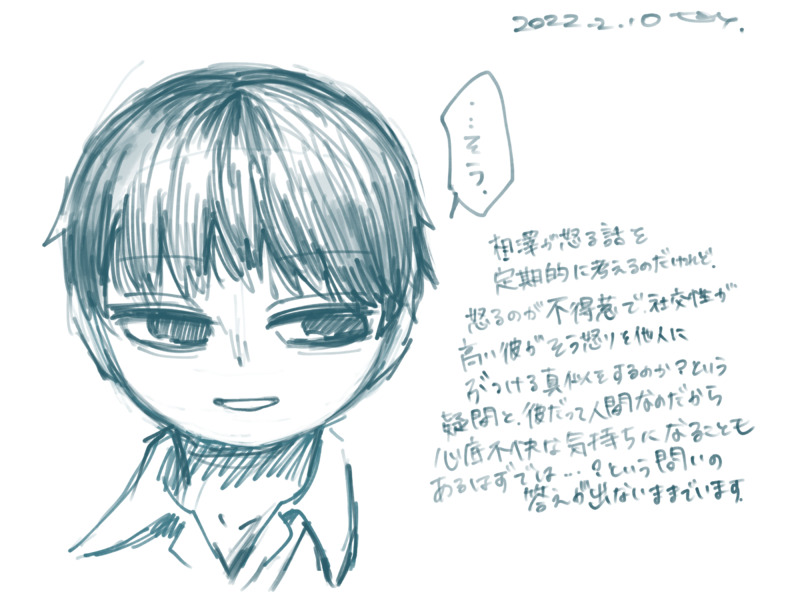 2022.2.10
…そう.
相澤が怒る話を
定期的に考えるのだけれど.
怒るのが不得者で.社交性が
高い彼がそう怒りを他人に
ぶつける真似をするのか？という
疑問と.彼だって人間なのだから
心底不快な気持ちになることも
あるはずでは…？という問いの
答えが出ないままでいます.